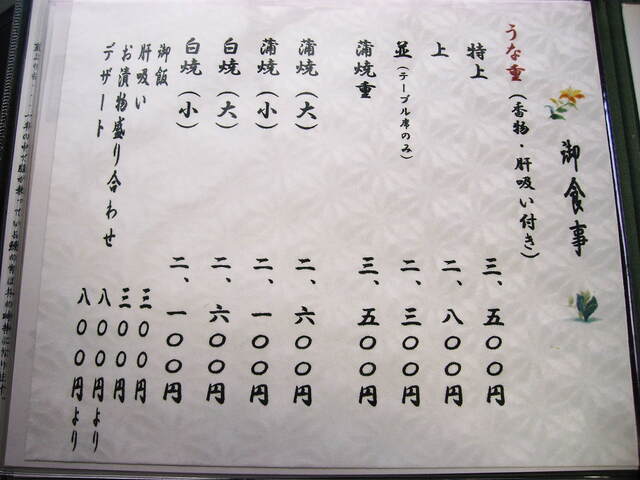 御食事
うな重(香物・肝吸い付き)
特上 三、五〇〇円
上 二、八〇〇円
並(テーブル席のみ) 二、三〇〇円
蒲焼重 三、五〇〇円
蒲焼(大) 二、六〇〇円
蒲焼(小) 二、一〇〇円
白焼(大) 二、六〇〇円
白焼(小) 二、一〇〇円
御飯 三〇〇円
肝吸い 三〇〇円
お漬物盛り合わせ 八〇〇円より
デザート 八〇〇円より